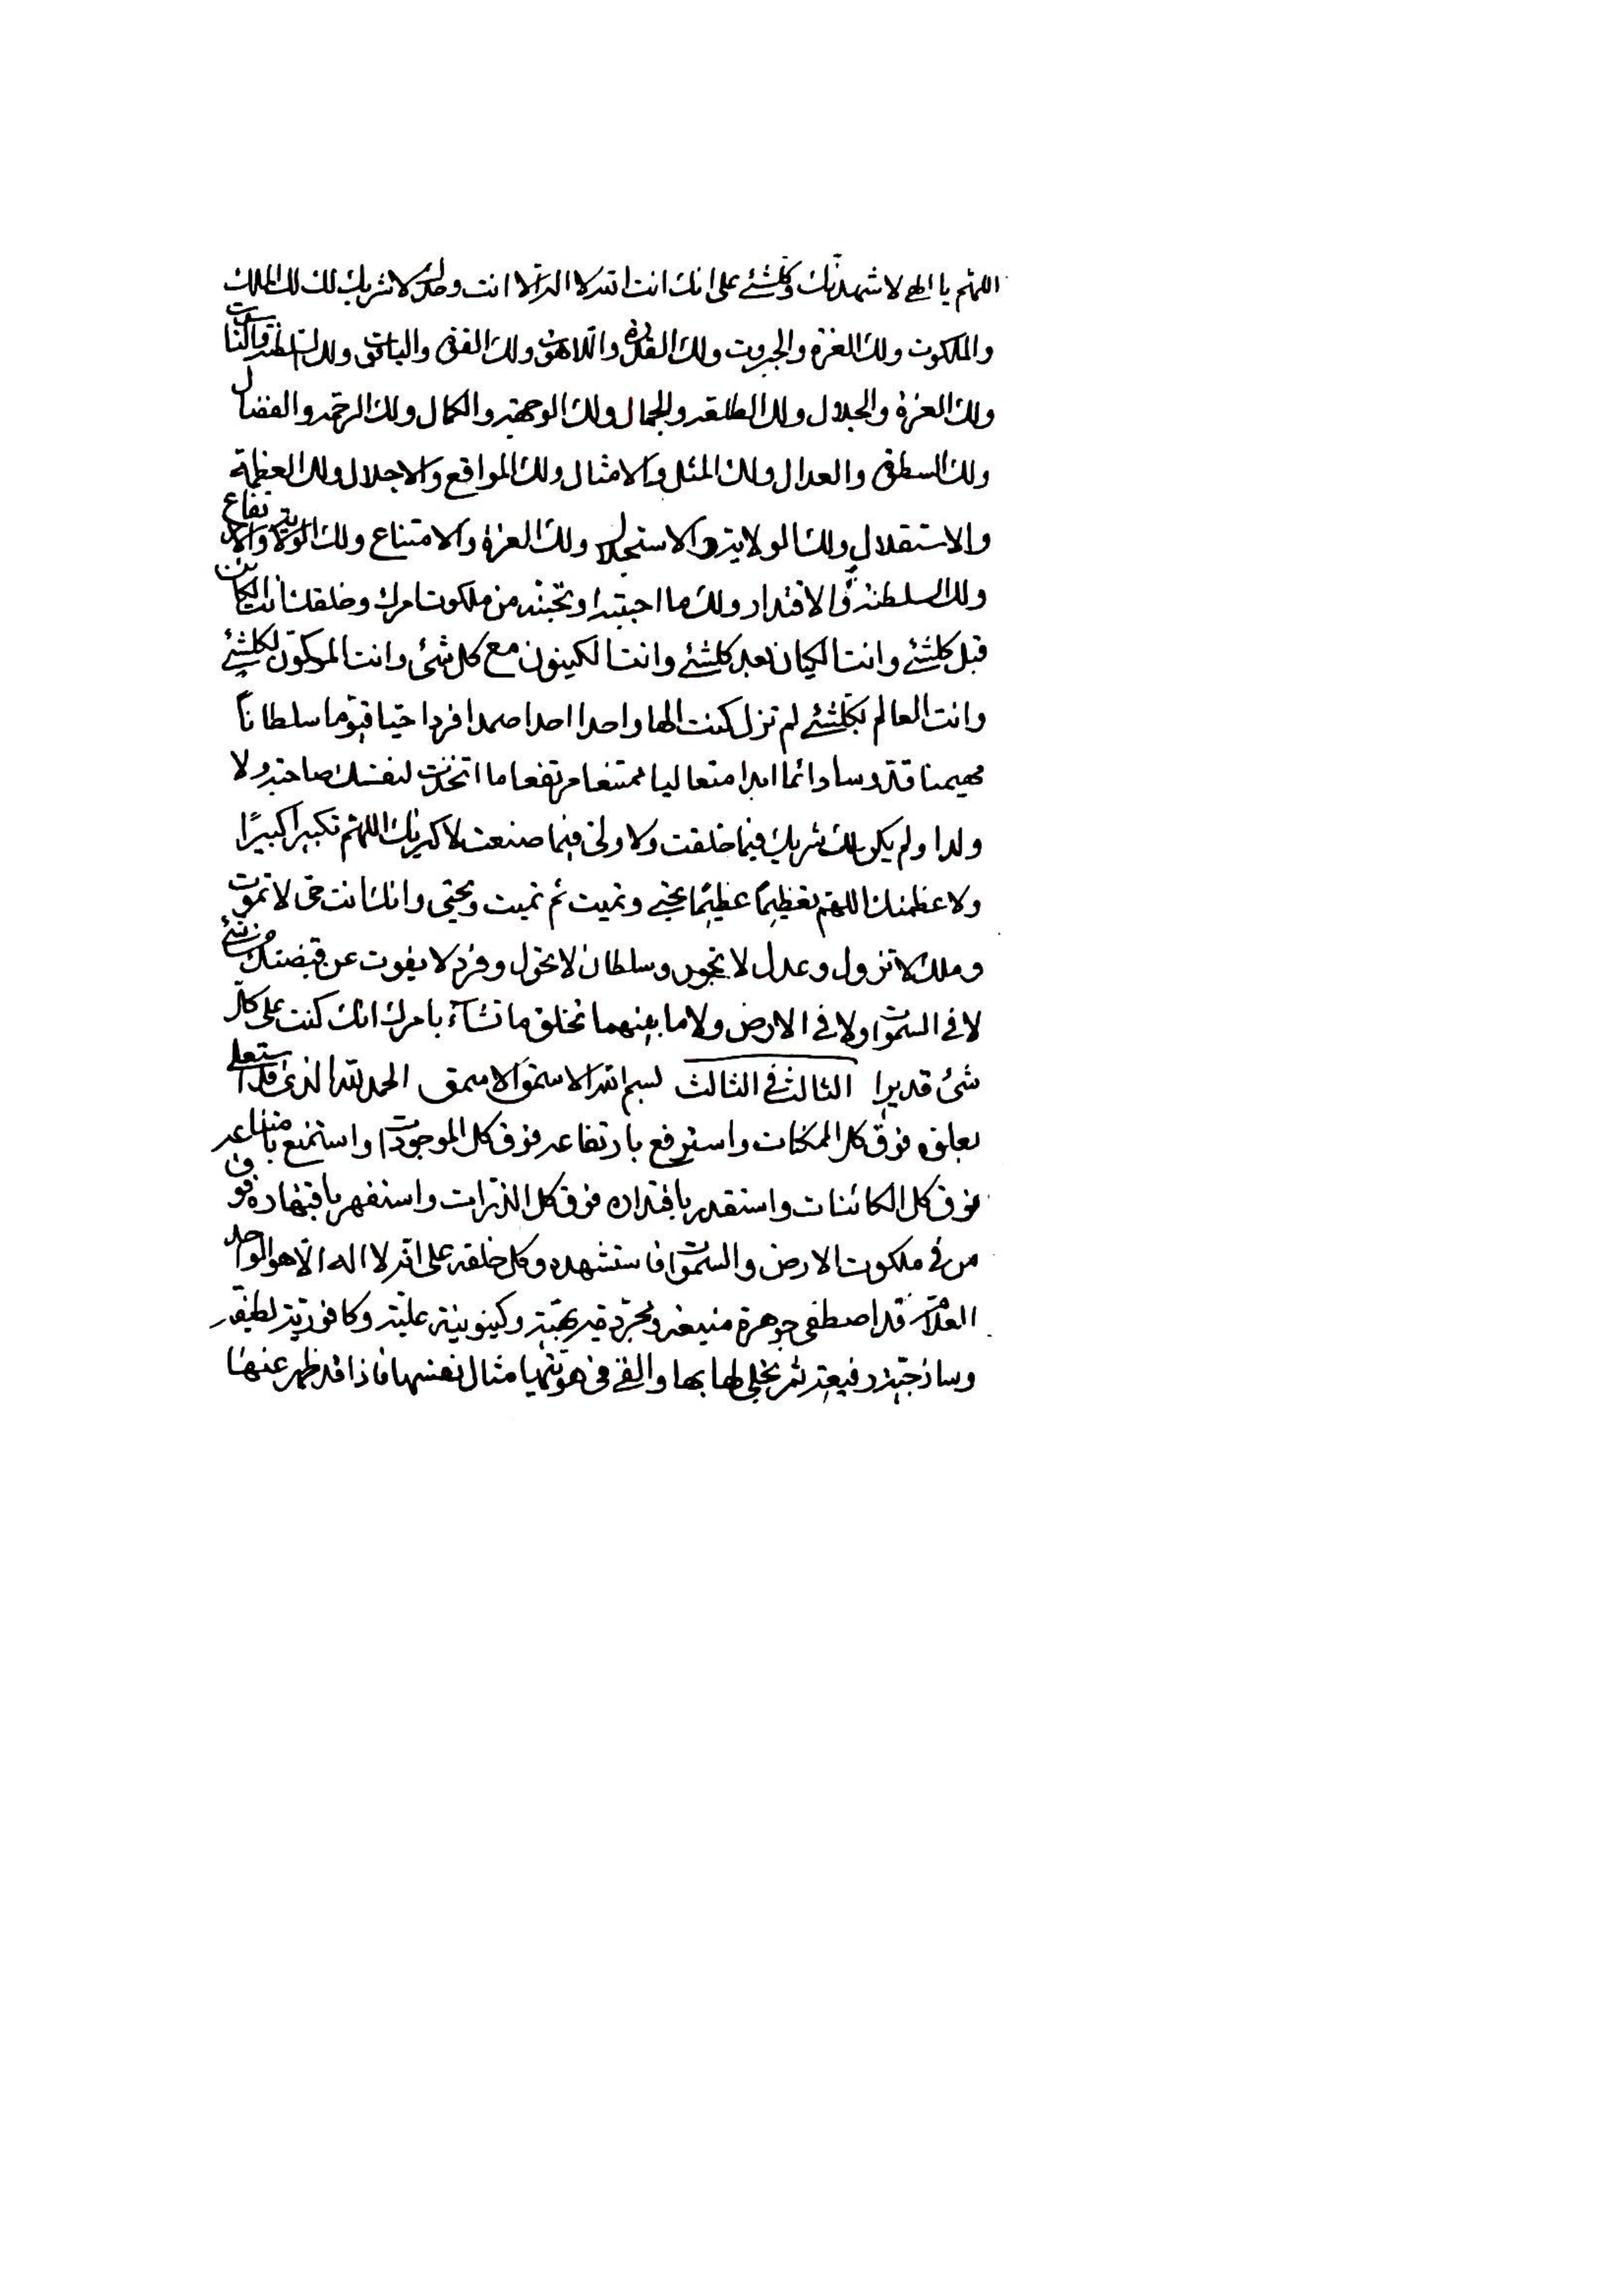 اللهم يا الهي لاشهدنك وكلشئ على انك انت الله لا اله الا انت وحدك لا شريك لك لك الملك
والملكوت ولك العزة والجبروت ولك القدرة واللاهوت ولك القوة والياقوت ولك السلطنة والناسوت
ولك العزة والجلال ولك الطلعة والجمال ولك الوجهة والكمال ولك الرحمة والفضال
ولك السطوة والعدال ولك المثل والامثال ولك المواقع والاجلال ولك العظمة
والاستقلال ولك الولاية والاستجلال ولك العزة والامتناع ولك الولاية والارتفاع
ولك السلطنة والاقتدار ولك ما احببته او تحبنه من ملكوت امرك وخلقك انت الكائن
قبل كلشئ وانت الكيان بعد كلشئ وانت الكينون مع كل شئ وانت المكون لكلشئ
وانت العالم بكلشئ لم تزل كنت الها واحدا احدا صمدا فردا حيا قيوما سلطانا
مهيمنا قدوسا دائما ابدا متعاليا ممتنعا مرتفعا ما اتخذت لنفسك صاحبة ولا
ولدا ولم يكن لك شريك فيما خلقت ولا ولي فيما صنعت لاكبرنك اللهم تكبيرا كبيرًا
ولاعظمنك اللهم تعظيمًا عظيمًا تحيي وتميت ثم تميت وتحيي وانك انت حي لا تموت
وملك لا تزول وعدل لا تجور وسلطان لا تحول وفرد لا يفوت عن قبضتك من شئ
لا في السموات ولا في الارض ولا ما بينهما تخلق ما تشآء بامرك انك كنت على كل
شئ قديرا الثالث في الثالث بسم الله الاسمق الاسمق الحمد لله الذي قد استعلى
بعلوه فوق كل الممكنات واسترفع بارتفاعه فوق كل الموجودات واستمنع بامتناعه
فوق كل الكائنات واستقدر باقتداره فوق كل الذرات واستقهر باقتهاره فوق
من في ملكوت الارض والسموات فاستشهده وكل خلقه على انه لا اله الا هو الواحد
العلام قد اصطفى جوهرة منيعة ومجردية بهية وكينونية علية وكافورية لطيفة
وساذجية رفيعة ثم تجلى لها بها والقى في هويتها مثال نفسها فاذا قد ظهر عنها